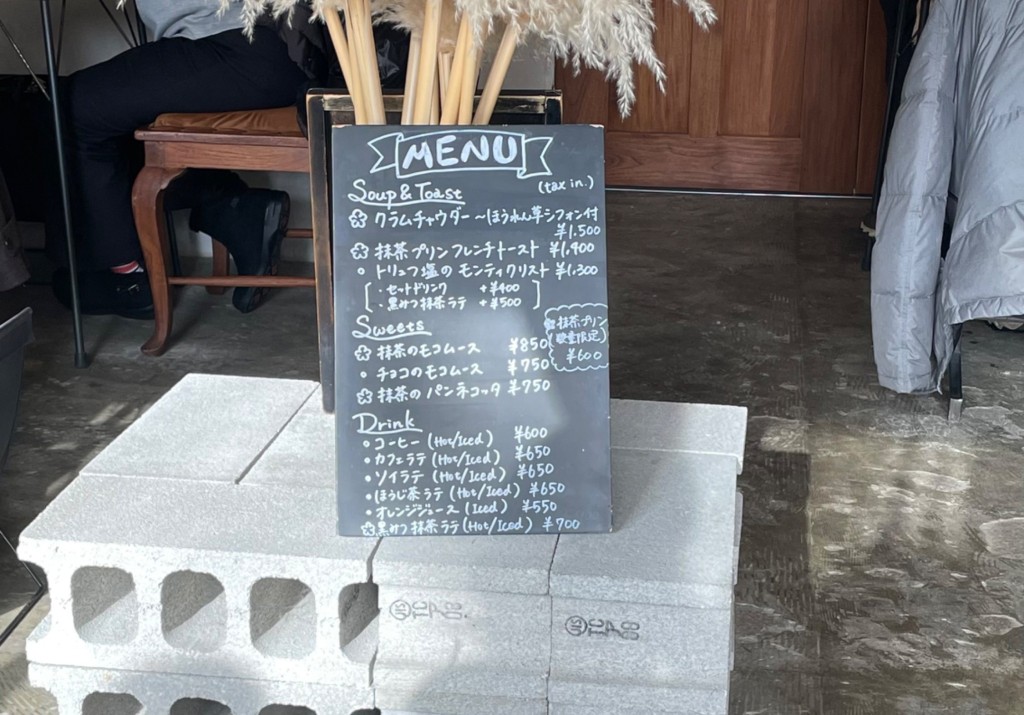 MENU
Soup & Toast (tax in.)
クラムチャウダー 〜ほうれん草シフォン付
¥1.500
抹茶プリンフレンチトースト ¥1.400
・トリュフ塩のモンティクリスト ¥1.300
・セットドリンク +¥400
・黒みつ抹茶ラテ +¥500
Sweets
抹茶のモコムース ¥850
・チョコのモコムース ¥750
抹茶のパンネコッタ ¥750
抹茶プリン
(数量限定)
¥600
Drink
・コーヒー (Hot/Iced) ¥600
・カフェラテ (Hot/Iced) ¥650
・ソイラテ (Hot/Iced) ¥650
・ほうじ茶ラテ (Hot/Iced) ¥650
・オレンジジュース (Iced) ¥550
黒みつ抹茶ラテ (Hot/Iced) ¥700